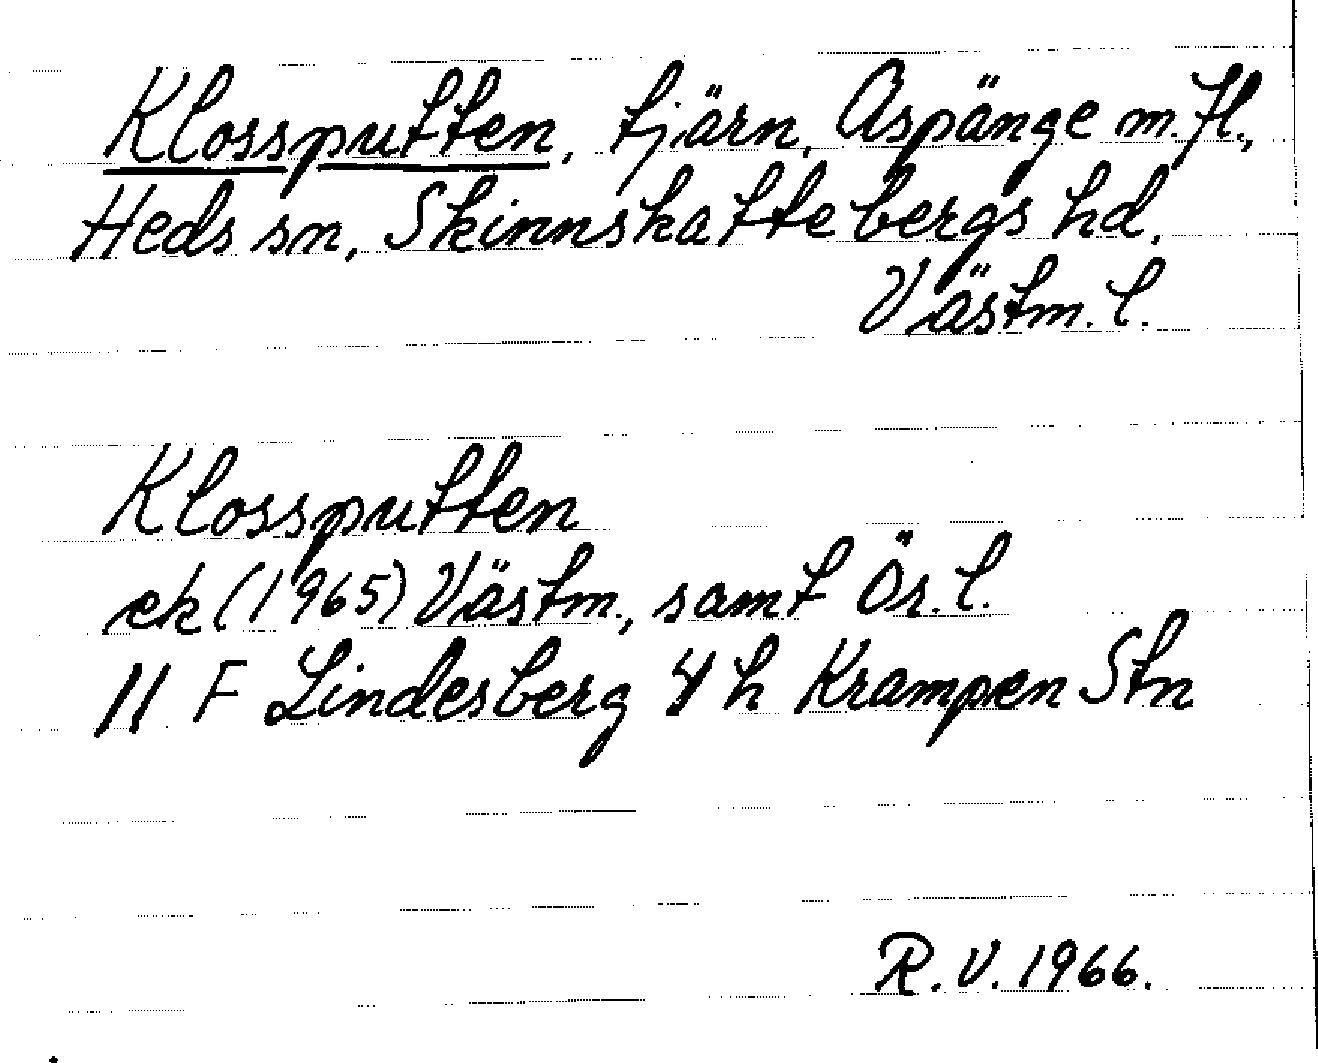 Klossputten, tjärn, Aspänge m.fl.,
Heds sn, Skinnskattebergs hd,
Västm. l.
Klossputten
ek (1965) Västm., samt Ör. l.
11 F Lindesberg 4 h Krampen Stn
R. V. 1966.